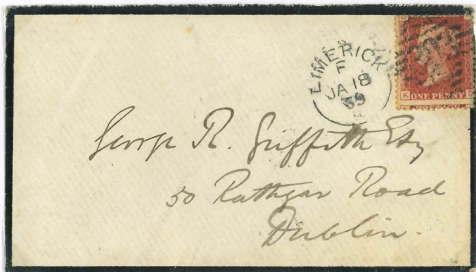 LIMERICK
F
JA 18
59
ONE PENNY
George R. Griffith Esq
50 Rathgar Road
Dublin.